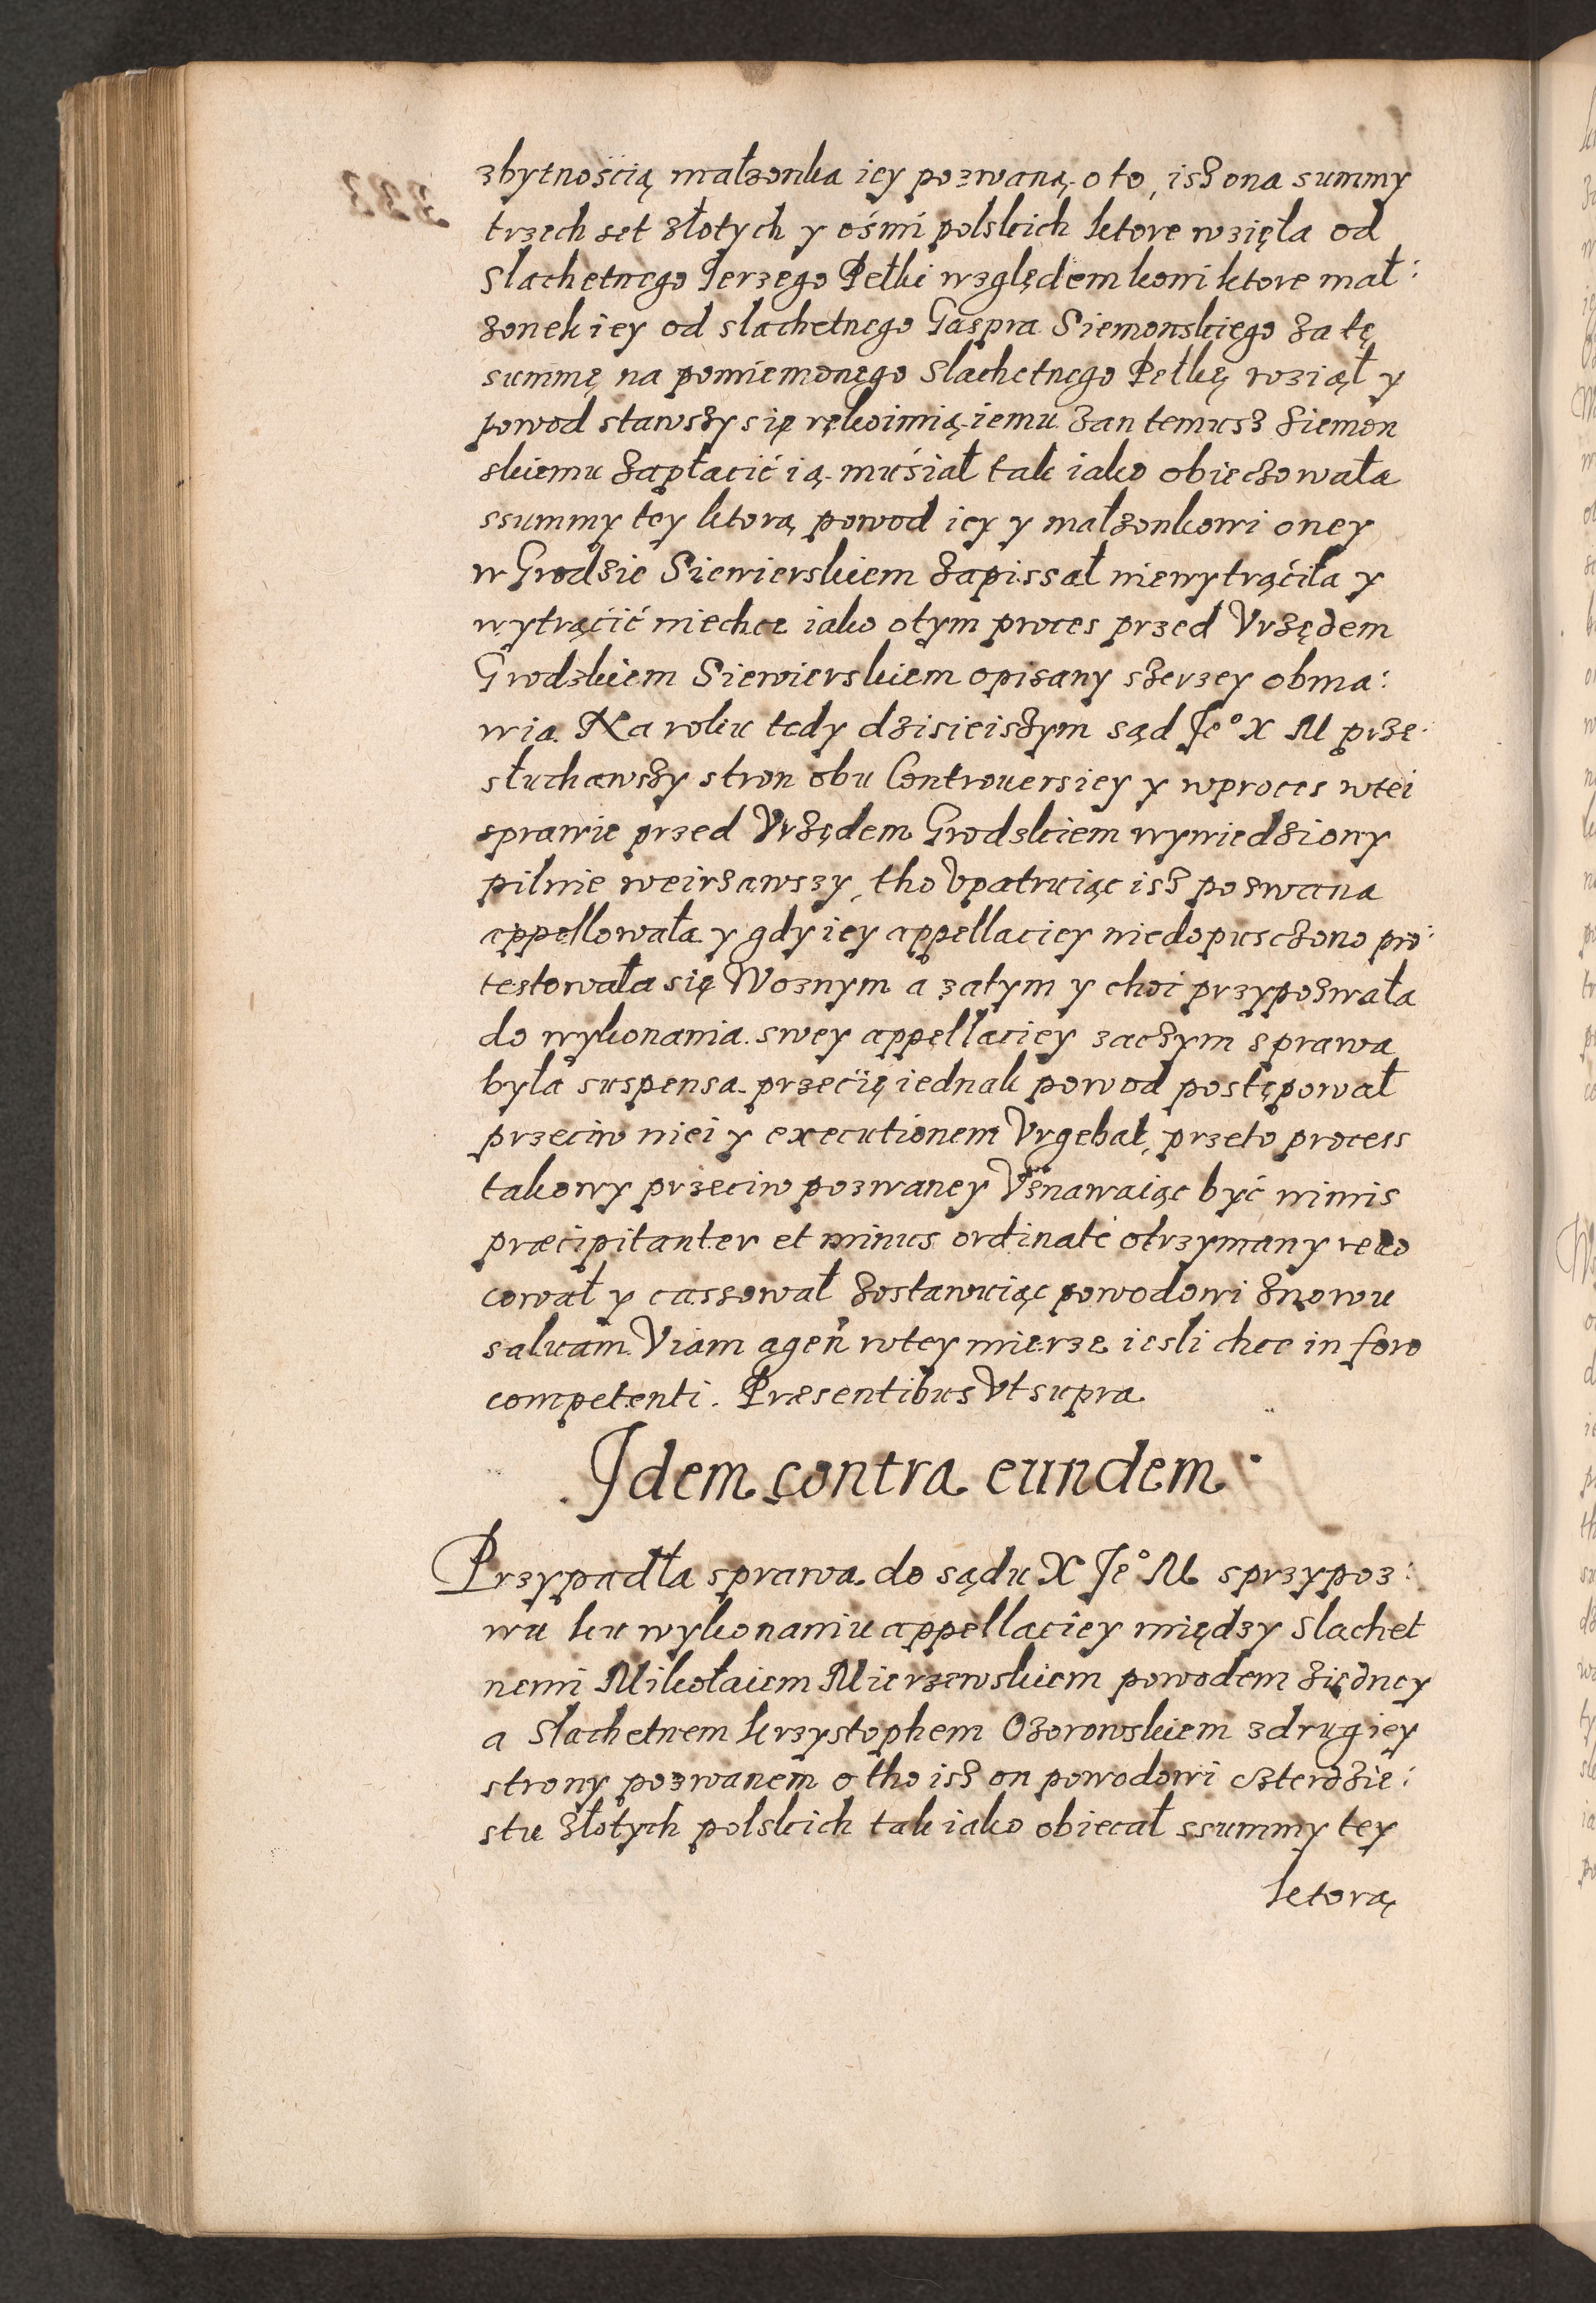 zbytnością małzonka iey pozwaną. o to, isz ona summy
trzech set złotych y ośmi polskich ktore wzięła od
Slachetnego Ierzego Pełki względem koni ktore mał:
zonek iey od slachetnego Gaspra Siemonskiego za tę
summę na pomiemonego Slachetnego Pełkę wziął y
powod stawszy się rękoimią iemu zan temusz Siemon
skiemu zapłacić ią musiał tak iako obieczowała
ssummy tey ktorą powod iey y małzonkowi oney
w Grodzie Siewierskiem zapissał niewytrąćiła y
wytrąćić niechce iako otym proces przed Vrzędem
Grodzkiem Siewierskiem opisany szerzey obma:
wia. Na roku tedy dzisieiszym sąd Je° X M prze:
słuchawszy stron obu Controuersiey y wproces wtei
sprawie przed Vrzędem Grodzkiem wywiedziony
pilnie weirzawszy, tho Vpatruiąc isz pozwana
appellowała y gdy iey appellaciey niedopusczono pro:
testowała się Woznym a zatym y choć przypozwała
do wykonania swey appellaciey zaczym sprawa
była suspensa. przecię iednak powod postępował
przeciw niei y executionem Vrgebat, przeto process
takowy przeciw pozwaney Vznawaiąc być nimis
præcipitanter et minus ordinatè otrzymany reuo
cował y cassował zostawuiąc powodowi znowu
saluam Viam agen̄ wtey mierze iesli chce in foro
competenti. Præsentibus Vt supra
Jdem contra eundem
Przypadła sprawa do sądu X Je° M sprzypoz:
wu ku wykonaniu appellaciey między Slachet
nemi Mikołaiem Mierzewskiem powodem ziedney
a Slachetnem krzystophem Ozorowskiem zdrugiey
strony pozwanem o tho isz on powodowi czterdzie:
stu złotych polskich tak iako obiecał ssummy tey
ktorą